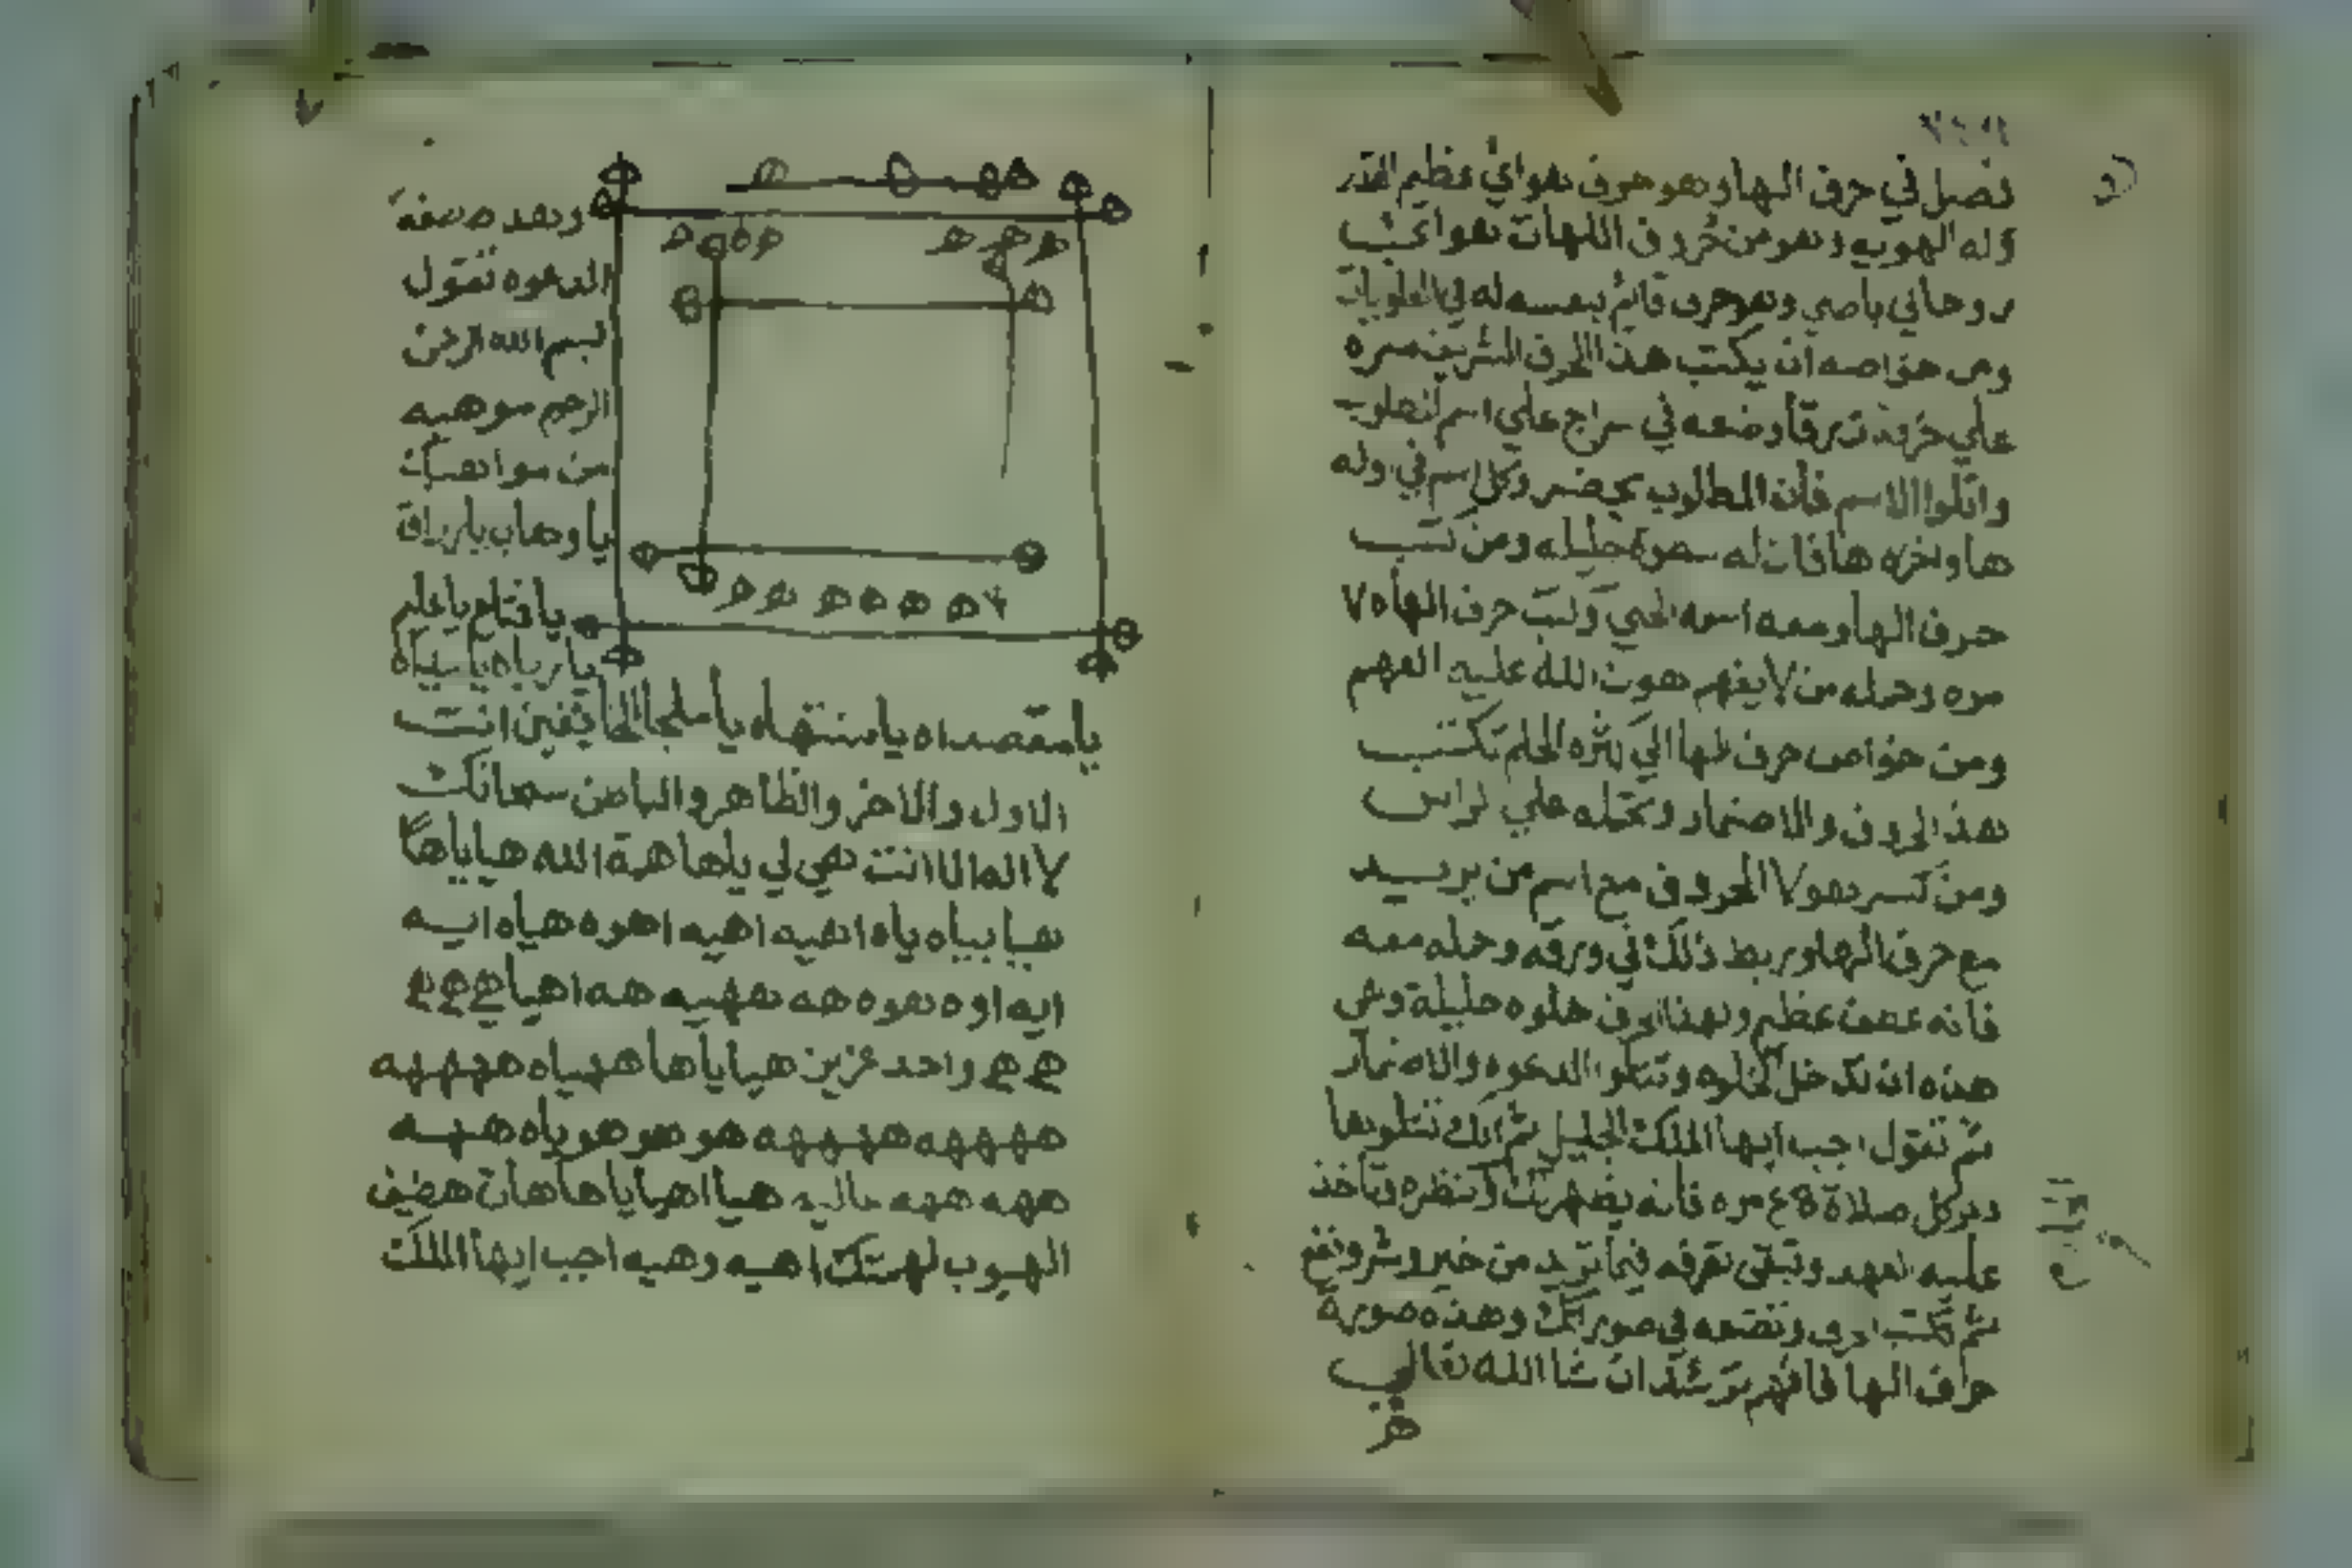 فصل في حرف الها وهو حرف هوائي عظيم القدر
وله الهويه وهو من حروف اللهات هوائي
روحاني باصي وهو حرف قائم بنفسه له في العلويات
ومن خواصه ان يكتب هذا الحرف الشريف مره
علي خرقة زرقا وضعه في سراج علي اسم المطلوب
واتلوا الاسم فان المطلوب يحضر وكل اسم في اوله
ها واخره ها فان له جليله ومن كتب
حرف الها ومعه اسمه الحي وكتب حرف الهاه ٧
مره وحمله من لا يفهم هون الله عليه الفهم
ومن خواص حرف الها الي تكتب
هذا الحروف والاضمار وتحمله علي راس
ومن كسر هولا الحروف مع اسم من يريد
مع حرف الها وربط ذلك في ورقه وحمله معه
فانه عطف عظيم ولهذا الحرف خلوه جليلة وهي
هذه ان تدخل الخلوه وتتلوا الدعوه والاضمار
ثم تقول اجب ايها الملك الجليل ثم انك تتلوها
دبر كل صلاة مره فانه يظهر لك وتنظره وتاخذ
عليه العهد وتبقي تعرفه فيما تريد من خير وشر ونفع
ثم تكتب الحرف وتضعه في وهذه صورة
حرف الها فافهم ترشد ان شا الله تعالي
وهذه صفة
الدعوه تقول
بسم الله الرحمن
الرحيم موهبه
من مواهبك
يا وهاب يا رزاق
يا فتاح يا عليم
يا رباه يا سيداه
يا مقصداه يا منتهاه يا ملجا الخايفين انت
الاول والاخر والظاهر والباطن سبحانك
لا اله الا انت هي لي ياها هة الله هيا ياها
هيا بياه ياه اهيه اهيه اهوه هياه ايه
ايه اوه هوه هه ههيه هه اهيا هج هج هج
هج هج واحد عزيز هيا ياها ههياه هههههه
ههههه هههههه هو هو هو ياه ههه
ههه ههه عاليه هيا اهيا ياها هات
الهوب اهيه وهيه اجب ايها الملك